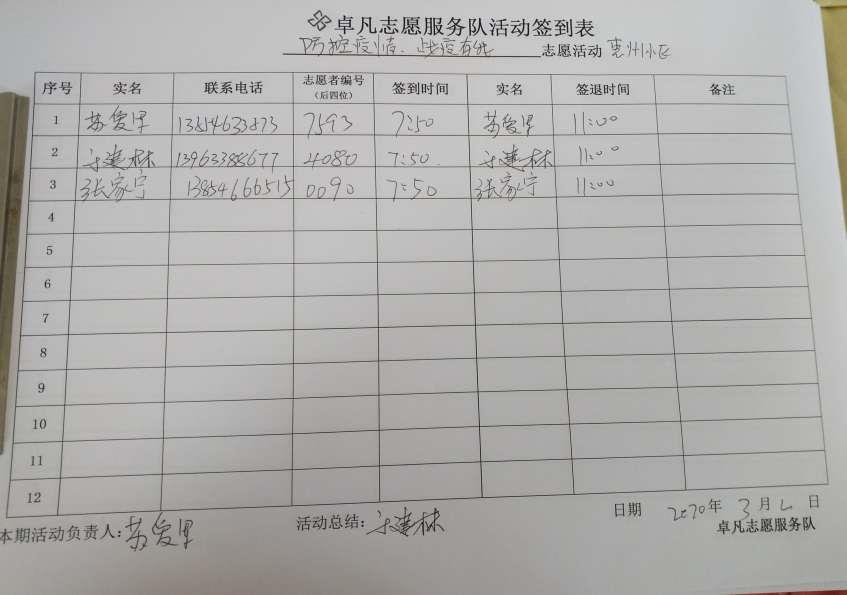 卓凡志愿服务队活动签到表
防控疫情、战疫有我 志愿活动 惠州小区
序号 实名 联系电话 志愿者编号（后四位） 签到时间 实名 签退时间 备注
1 苏爱军 13854633873 7593 7:50 苏爱军 11:00
2 于建林 13963388677 4080 7:50. 于建林 11:00
3 张家宁 13854666515 0090 7:50 张家宁 11:00
4
5
6
7
8
9
10
11
12
本期活动负责人:苏爱军 活动总结:于建林 日期 2020年 3月 日
卓凡志愿服务队